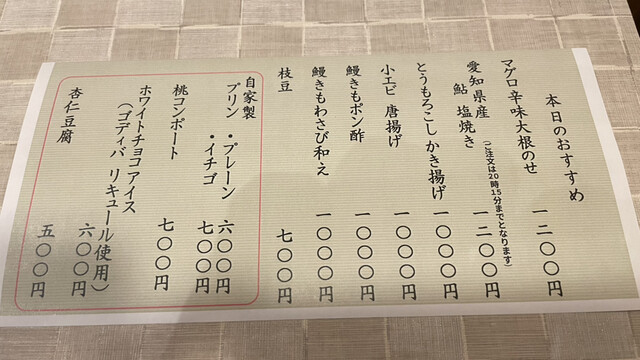 本日のおすすめ
マグロ 辛味大根のせ 一二〇〇円
愛知県産 鮎 塩焼き 一二〇〇円
(ご注文は20時15分までとなります)
とうもろこし かき揚げ 一〇〇〇円
小エビ 唐揚げ 一〇〇〇円
鰻きもポン酢 一〇〇〇円
鰻きもわさび和え 一〇〇〇円
枝豆 七〇〇円
自家製
プリン ・プレーン 六〇〇円
・イチゴ 七〇〇円
桃コンポート 七〇〇円
ホワイトチョコアイス
(ゴディバ リキュール使用) 六〇〇円
杏仁豆腐 五〇〇円